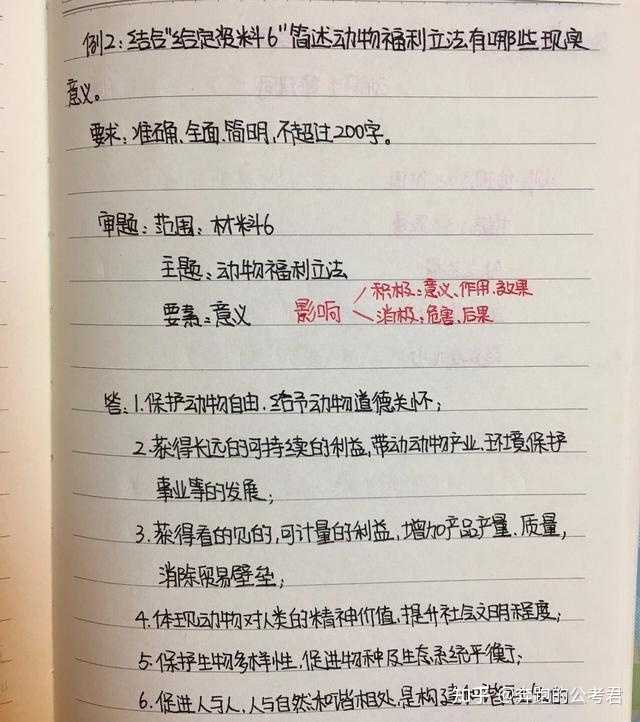 例2：结合“给定资料6”简述动物福利立法有哪些现实
意义。
要求：准确、全面、简明，不超过200字。
审题：范围：材料6
主题：动物福利立法
要素：意义 影响 积极：意义、作用、效果
消极：危害、后果
答：1.保护动物自由，给予动物道德关怀；
2.获得长远的可持续的利益，带动动物产业、环境保护
事业等的发展；
3.获得看的见的，可计量的利益，增加产品产量、质量，
消除贸易壁垒；
4.体现动物对人类的精神价值，提升社会文明程度；
5.保护生物多样性，促进物种及生态系统平衡；
6.促进人与人、人与自然和谐相处，是构建
知乎 @奔跑的公考君